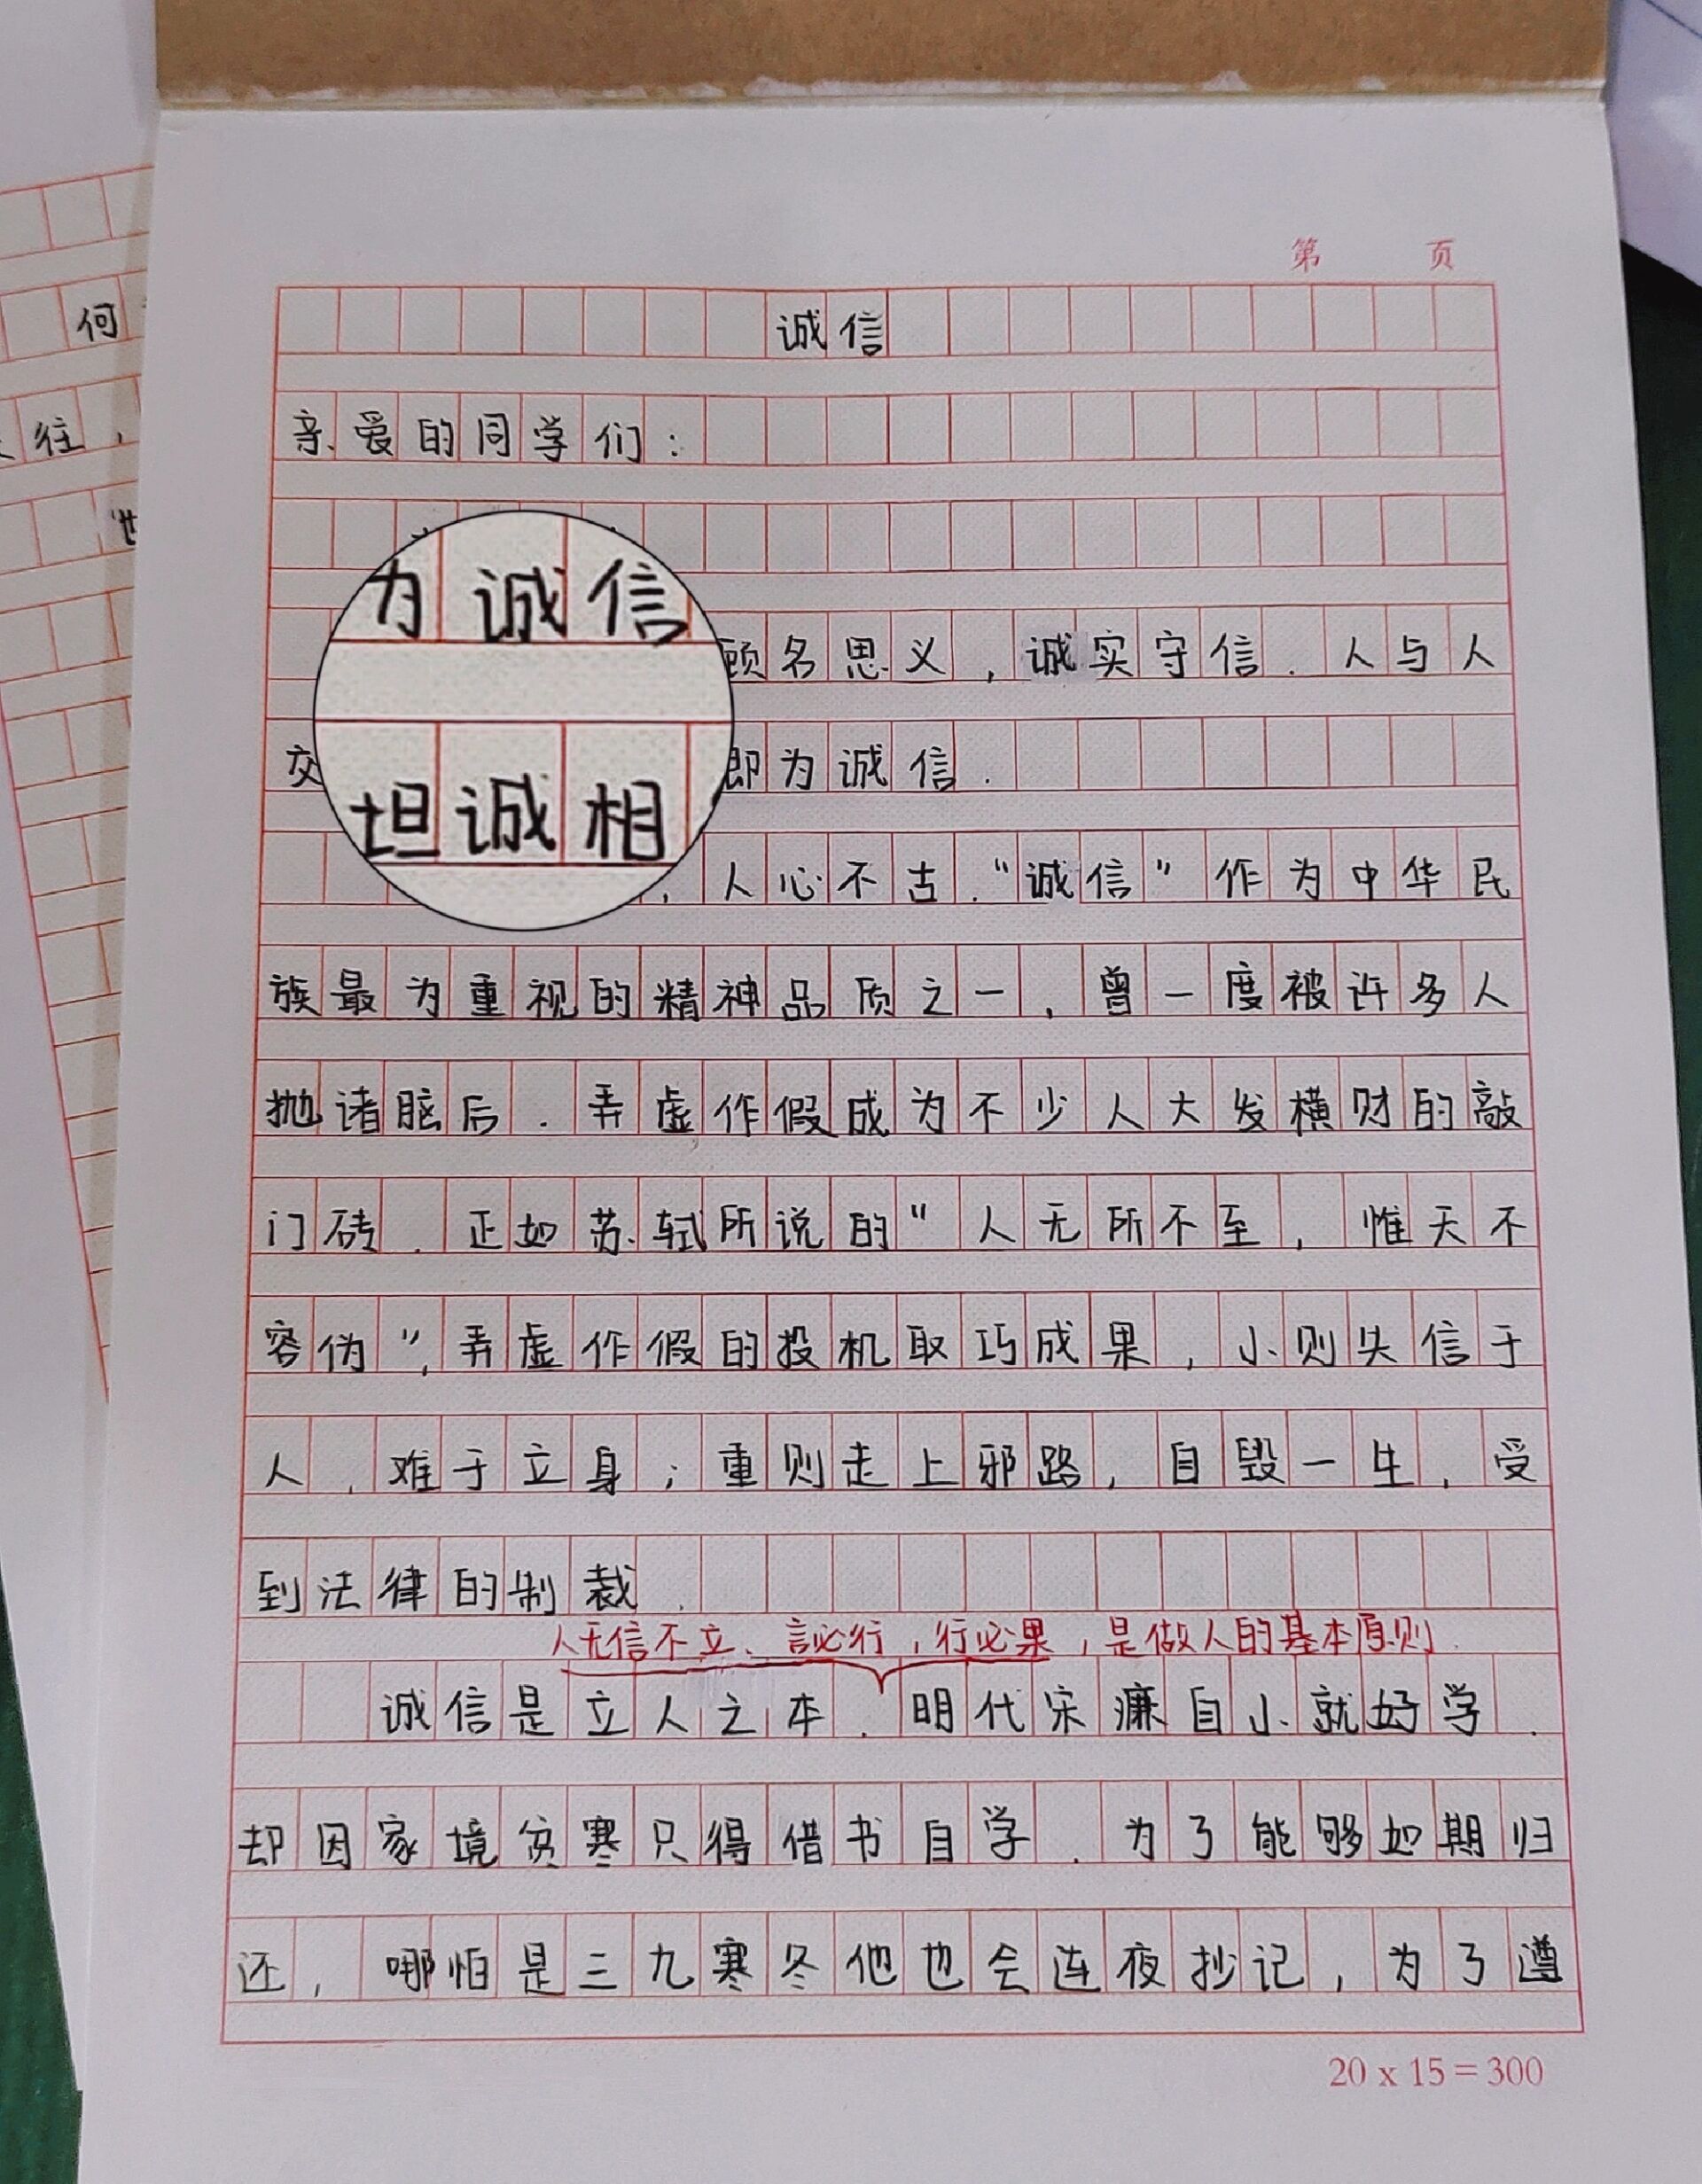 第 页
诚信
亲爱的同学们：
为诚信
顾名思义，诚实守信.人与人
坦诚相
交
即为诚信.
，人心不古.“诚信”作为中华民
族最为重视的精神品质之一，曾一度被许多人
抛诸脑后.弄虚作假成为不少人大发横财的敲
门砖.正如苏轼所说的“人无所不至，惟天不
容伪”，弄虚作假的投机取巧成果，小则失信于
人，难于立身；重则走上邪路，自毁一生，受
到法律的制裁.
人无信不立、言必行，行必果，是做人的基本原则.
诚信是立人之本.明代宋濂自小就好学.
却因家境贫寒只得借书自学.为了能够如期归
还，哪怕是三九寒冬他也会连夜抄记，为了遵
20 x 15 = 300
何
往，
“世